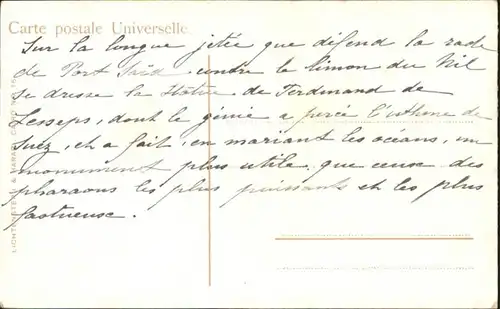 Carte postale Universelle
Sur la longue jetée que défend la rade
de Port Saïd contre le limon du Nil
se dresse la Statue de Ferdinand de
Lesseps, dont le génie a percé l'isthme de
Suez, et a fait, en mariant les océans, un
monument plus utile que ceux des
pharaons les plus puissants et les plus
fastueuse.
LICHTENSTERN & HARARI, CAIRO